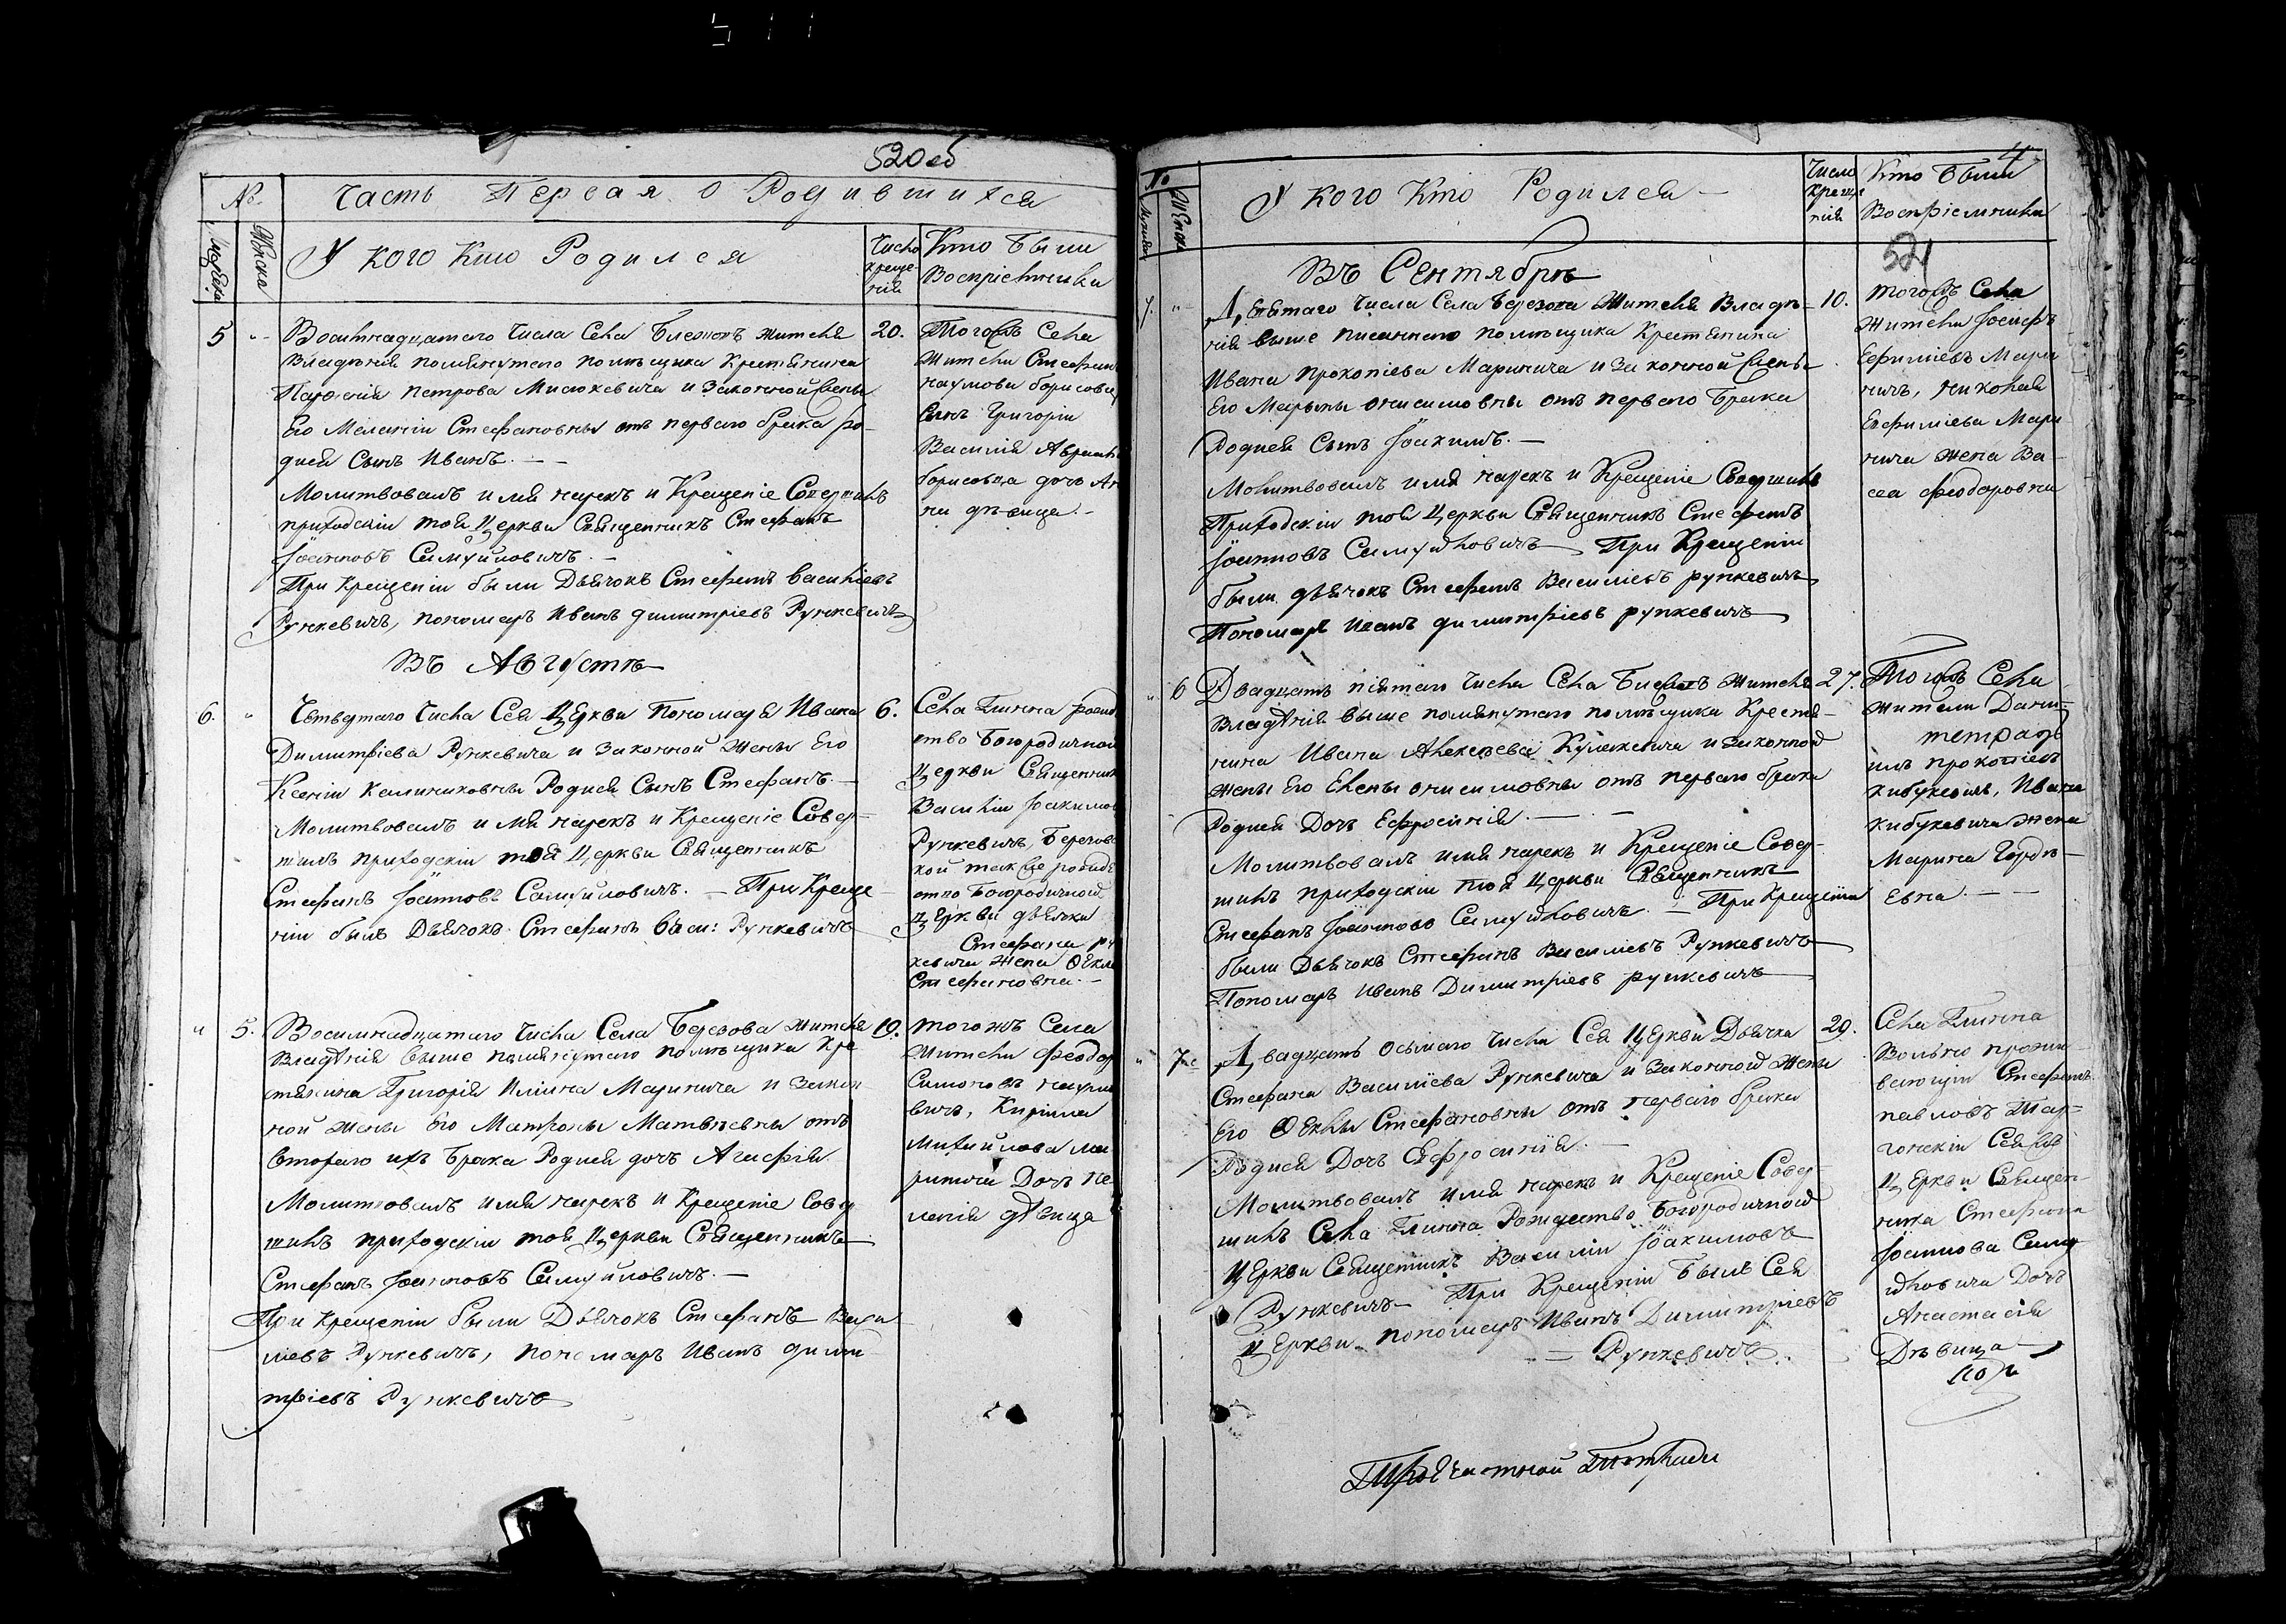 520 об
№
Часть Первая о Родившихся
Мужеска
Женска
У кого Кто Родился
Число
креще-
нія
Кто были
Воспріемники
5
Восимнадцатого числа Села жителя
Владѣнія помянутого помѣщика Крестянина
Петрова Мисюкевича и Законной жены
Его Меланіи Стефановны отъ первого брака Ро-
дися Сынъ Иванъ. —
Молитвовалъ имя нарекъ и Крещеніе Совершилъ
приходскій тоя Церкви Священникъ Стефанъ
Іоанновъ Самуйловичъ. —
При Крещеніи были Дьячокъ Стефанъ Васильевъ
Рункевичъ, пономаръ Иванъ Димитріевъ Рункевичъ
20.
Тогожъ Села
жители Стефан
наумова борисовца
Сынъ Григорій
Василія
борисовца дочь
дѣвица. —
Въ Августѣ
6.
Четвертого числа Сея Церкви Пономаря Ивана
Димитріева Рункевича и Законной Жены Его
Ксеніи Калиниковны Родися Сынъ Стефанъ. —
Молитвовалъ имя нарекъ и Крещеніе Совер-
шилъ приходскій тоя Церкви Священникъ
Стефанъ Іоанновъ Самуйловичъ. — При Креще-
ніи былъ Дьячокъ Стефанъ Васи: Рункевичъ
6.
Села Глинна рожде
ство Богородичной
Церкви Священник
Василій Іоакимов
Рункевичъ, Березовс
кой такъже рожде
ство Богородичной
Церкви дьячка
Стефана Ру
кевича жена Өекла
Стефановна. —
5.
Восимнадцатого числа Села Березова жителя
Владѣнія выше помянутого помѣщика Кре
стянина Григорія Иліина Маринича и Закон-
ной жены Его Матроны Матвѣевны отъ
Второго ихъ брака Родися дочь Агафія
Молитвовалъ имя нарекъ и Крещеніе Совер
шилъ приходскій тоя Церкви Священникъ
Стефанъ Іоанновъ Самуйловичъ. —
При Крещеніи были Дьячокъ Стефанъ Васи
лиевъ Рункевичъ, пономаръ Иванъ Дими
тріевъ Рункевичъ
19.
тогожъ Села
Жители Феодор
Симоновъ науми
вичъ, Кирилла
Михайлова ма
ринича Дочь Пе
лагія дѣвица
4
№
Мужска
Женска
У кого Кто Родился —
Число
Креще-
нія
Кто были
Воспріемники
521
Въ Сентябрѣ
7.
Девятаго числа Села Березова Жителя Владѣ-
нія выше писанного помѣщика Крестянина
Ивана Прокопіева Маринича и Законной жены
Его Марьяны Онисимовны отъ первого брака
Родися Сынъ Іоакимъ. —
Молитвовалъ имя нарекъ и Крещеніе Совершилъ
Приходскій тоя Церкви Священникъ Стефанъ
Іоанновъ Самуйловичъ — При Крещеніи
были дьячокъ Стефанъ Василиевъ рункевичъ
Пономаръ Иванъ димитріевъ рункевичъ
10.
Тогожъ Села
Жители Іосифъ
Ефиміевъ Мари
ничъ, николая
Евфиміева Мари
нича жена Ва-
сса феодоровна
6
Двадцать пятаго числа Села жителя
Владѣнія выше помянутого помѣщика Крестя-
нина Ивана Алексѣева и Законной
жены Его Елены Онисимовны отъ первого брака
Родися Дочь Ефросинія. —
Молитвовалъ имя нарекъ и Крещеніе Совер-
шилъ приходскій тоя Церкви Священникъ
Стефанъ Іоанновъ Самуйловичъ. — При Крещеніи
были Дьячокъ Стефанъ Василиевъ Рункевичъ
Пономаръ Иванъ Димитріевъ рункевичъ
27.
Тогожъ Села
жители Дани-
тетрадь
илъ прокопіевъ
Кибукевичъ, Ивана
Кибукевича жена
Марина Гордѣ-
евна. —
7
Двадцать осьмаго числа Сея Церкви Дьячка
Стефана Василіева Рункевича и Законной Жены
Его Өеклы Стефановны отъ первого брака
Родися Дочь Евфросинія. —
Молитвовалъ имя нарекъ и Крещеніе Совер-
шилъ Села Глинна Рождество Богородичной
Церкви Священникъ Василій Іоакимовъ
Рункевичъ — При Крещеніи былъ Сея
Церкви пономаръ Иванъ Димитріевъ
Рункевичъ.
29.
Села Глинна
Вольно прожи
вающій Стефанъ
павловъ
Сея же
Церкви Священ-
ника Стефана
Іоаннова Саму
йловича Дочь
Анастасія
Дѣвица